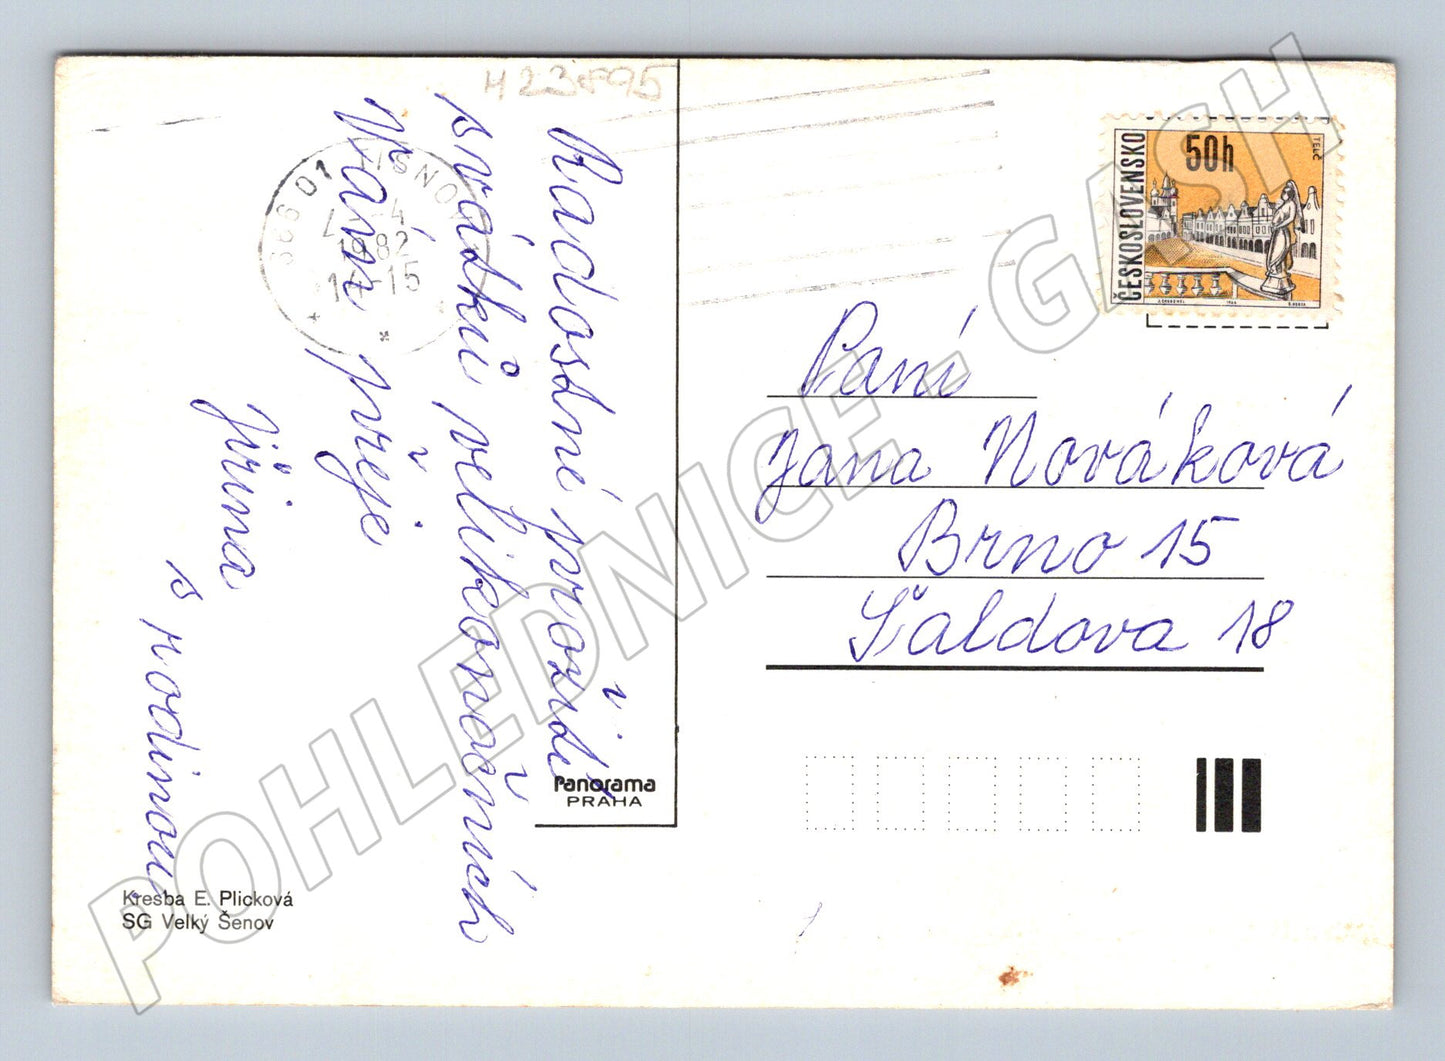 H23895
Radostné prožití
svátků velikonočních
Vám přeje
Jiřina
s rodinou
666 01 TIŠNOV
4
1982
14-15
Panorama
PRAHA
Kresba E. Plicková
SG Velký Šenov
ČESKOSLOVENSKO
50h
TELČ
1966
Paní
Jana Nováková
Brno 15
Šaldova 18
POHLEDNICE - GASH